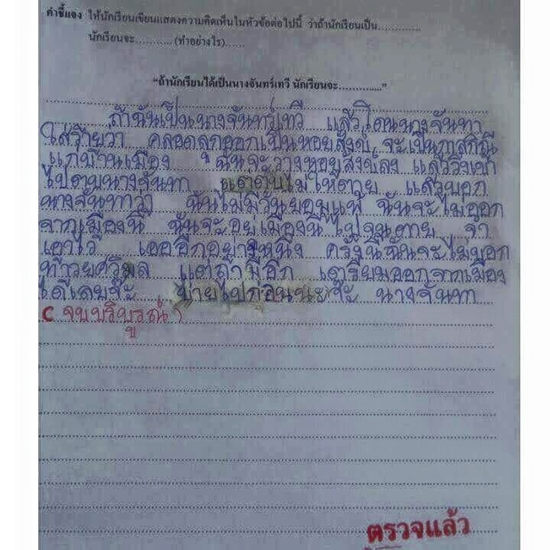 คำชี้แจง ให้นักเรียนเขียนแสดงความคิดเห็นในหัวข้อต่อไปนี้ ว่าถ้านักเรียนเป็น............
นักเรียนจะ............(ทำอย่างไร).....
"ถ้านักเรียนได้เป็นนางจันทร์เทวี นักเรียนจะ............."
ถ้าฉันเป็นนางจันทร์เทวี แล้วโดนนางจันทา
ใส่ร้ายว่า คลอดลูกออกเป็นหอยสังข์ จะเป็นกาลกิณี
แก่บ้านเมือง ฉันจะวางหอยสังข์ลง แล้ววิ่งเข้า
ไปตบนางจันทา แต่ตบไม่ให้ตาย แล้วบอก
นางจันทาว่า ฉันไม่มีวันยอมแพ้ ฉันจะไม่ออก
จากเมืองนี้ ฉันจะอยู่เมืองนี้ไปจนตาย จำ
เอาไว้ เออ อีกอย่างหนึ่ง ครั้งนี้ฉันจะไม่บอก
ท้าวยศวิมล แต่ถ้ามีอีก เตรียมออกจากเมือง
ได้เลยจ้ะ บ่ายไปก่อนนะจ๊ะ นางจันทา
( จบบริบูรณ์ )
ตรวจแล้ว